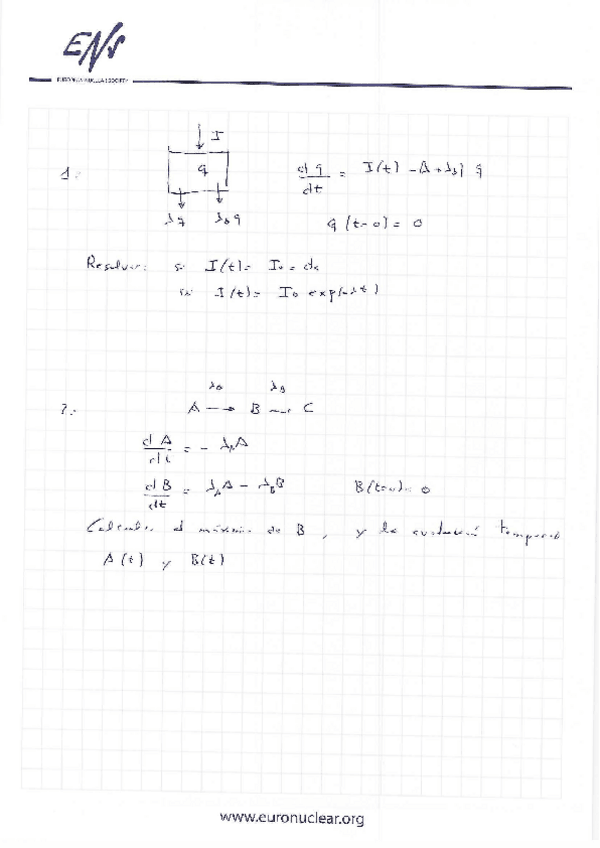 ENS
EUROPEAN NUCLEAR SOCIETY
I
1:
q
dq/dt = I(t) - (λ+λ_B) q
λq λ_B q
q(t=0) = 0
Resolver: si I(t) = I₀ = cte
si I(t) = I₀ exp(-λt)
λ_A λ_B
2:
A → B → C
dA/dt = - λ_A A
dB/dt = λ_A A - λ_B B B(t=0) = 0
Calcular el máximo de B, y la evolución temporal
A(t) y B(t)
www.euronuclear.org